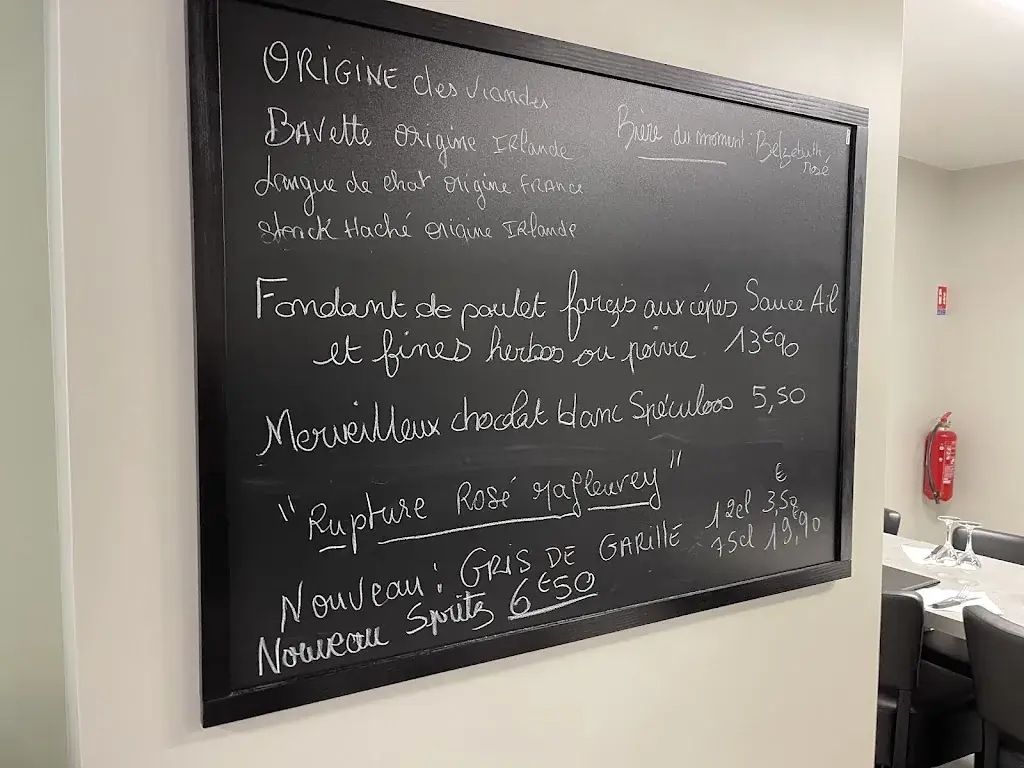 ORIGINE des Viandes
BAVette origine IRlande
Langue de chat origine FRANCE
steack Haché origine IRlande
Bière du moment: Belzebuth
rosé
Fondant de poulet farçis aux cépes Sauce Ail
et fines herbes ou poivre 13€90
Merveilleux chocolat blanc Spéculoos 5,50
"Rupture Rosé Mafleurey"
Nouveau: GRIS DE GARILLE 12cl 3,50€
75cl 19,90€
Nouveau Spritz 6€50